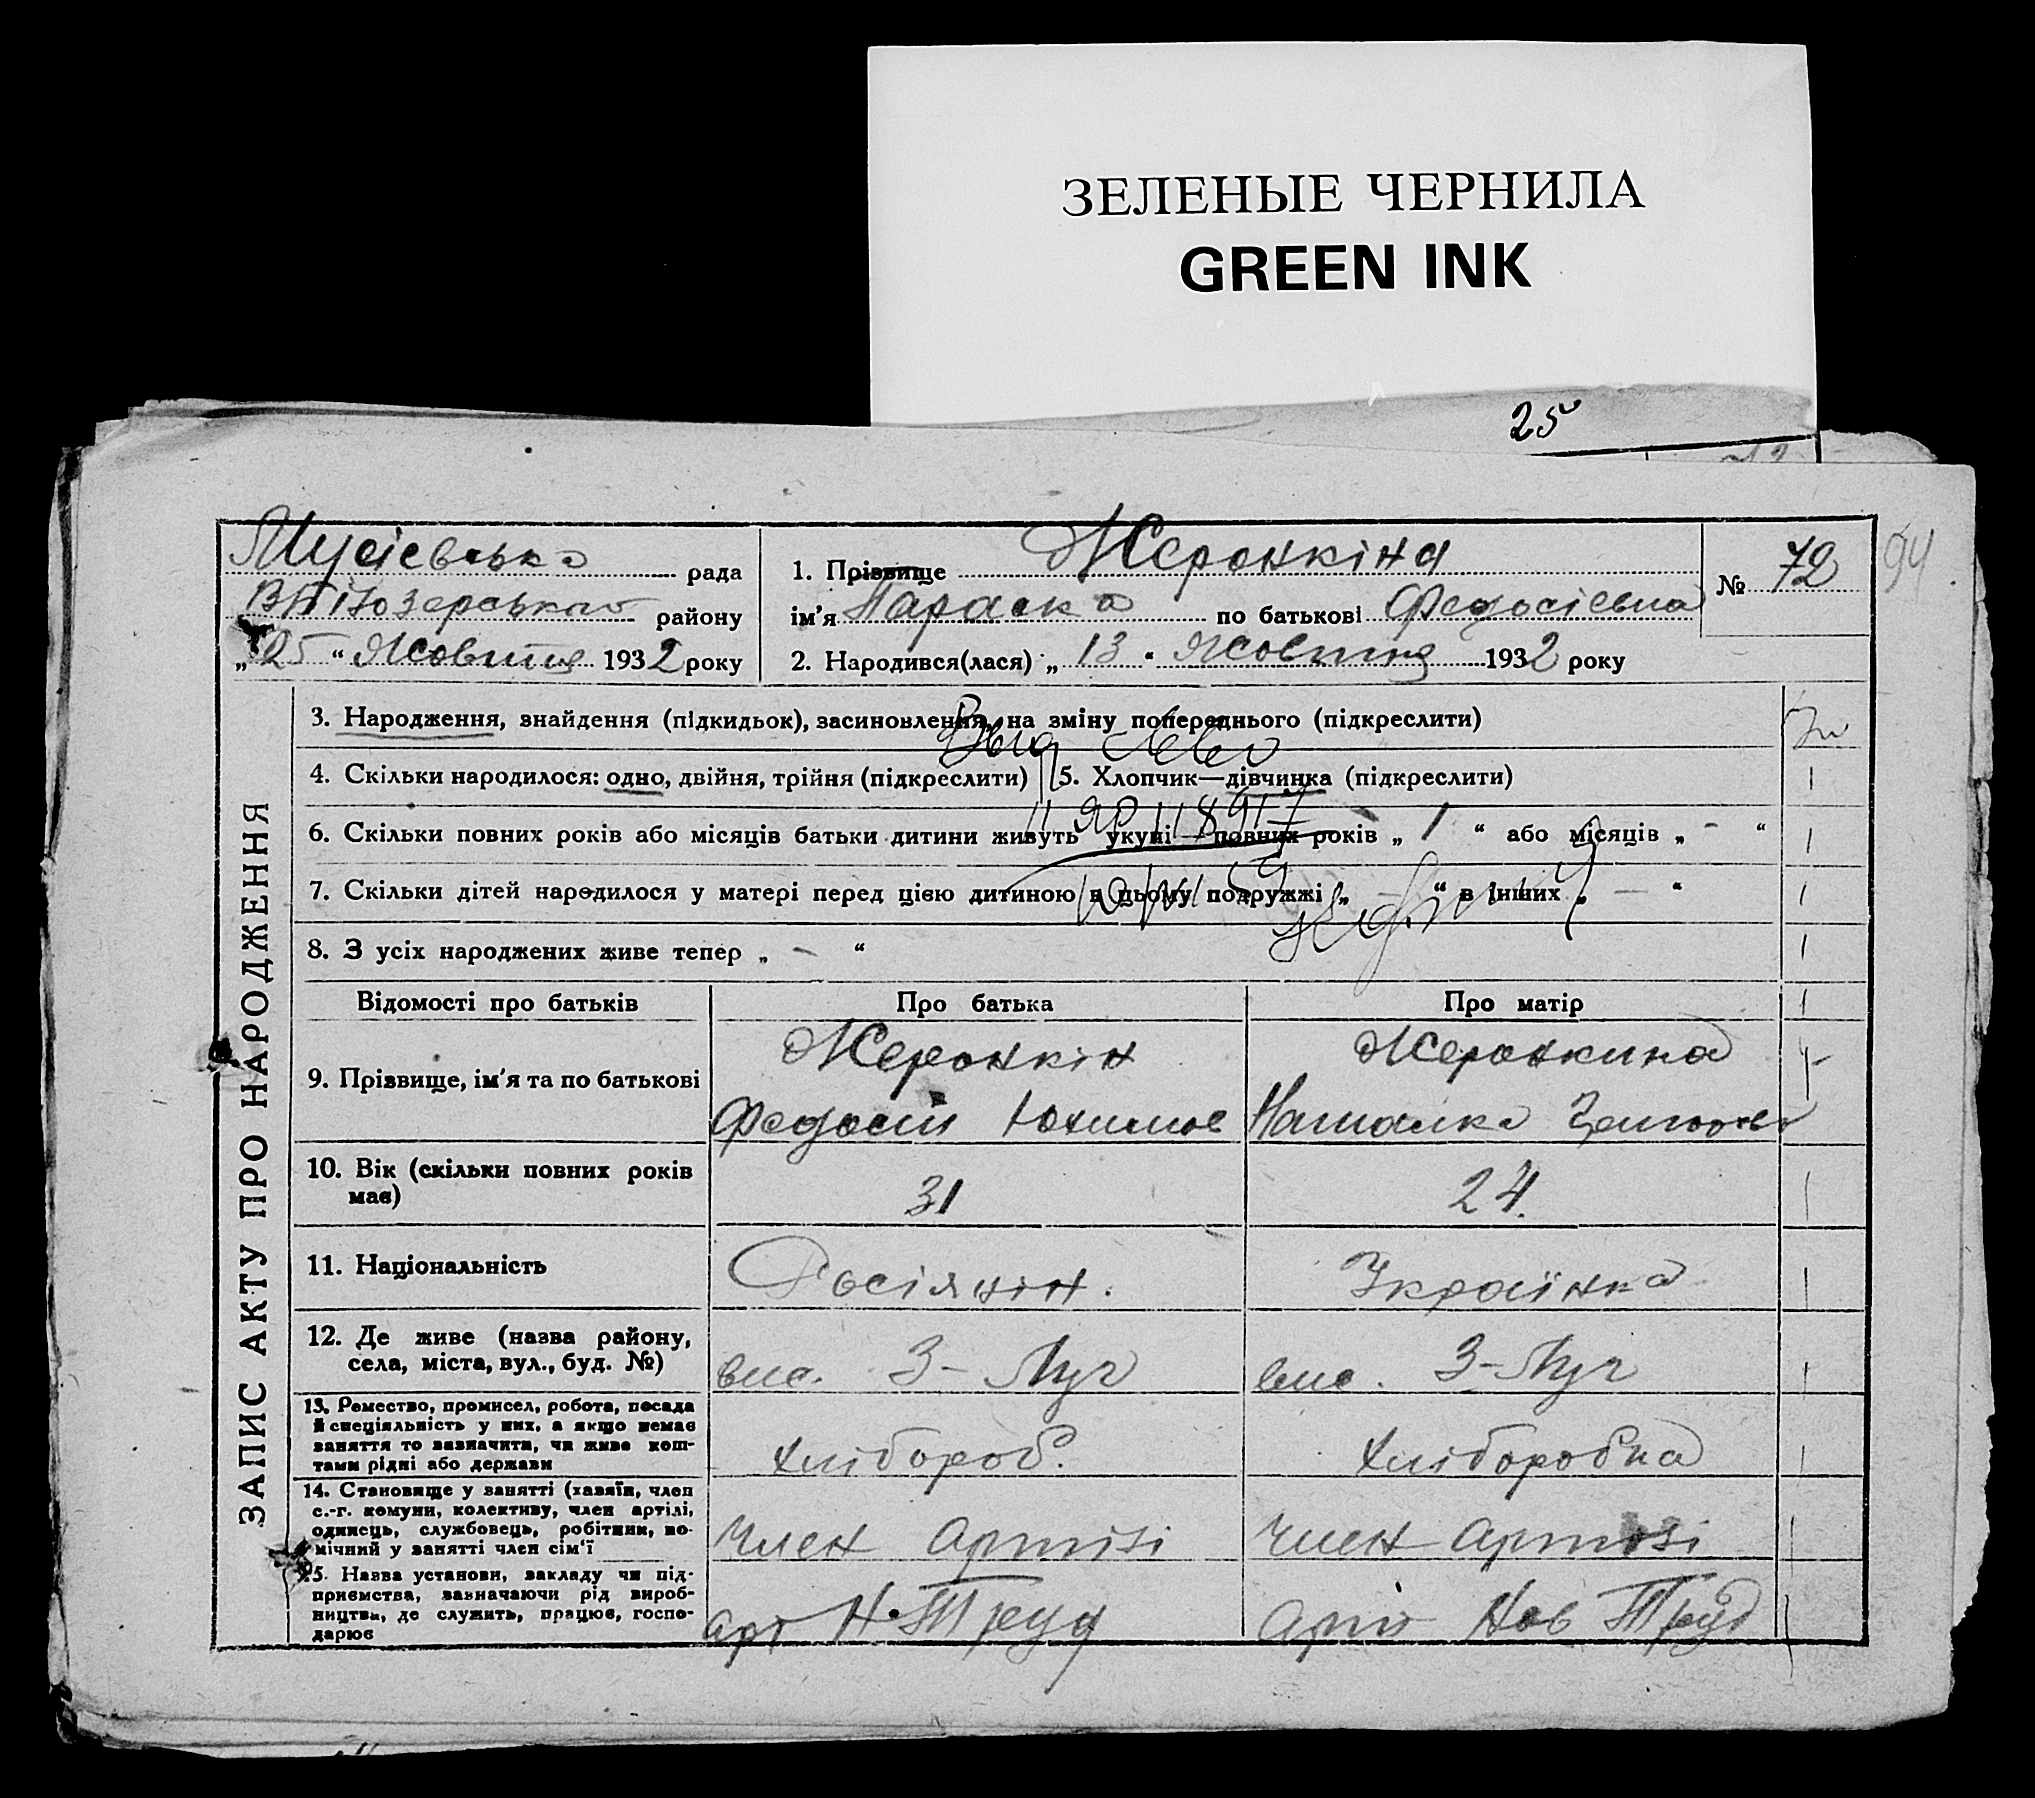 ЗЕЛЕНЫЕ ЧЕРНИЛА
GREEN INK
25
Мусієвська рада
району
„25“ Жовтня 1932 року
1. Прізвище Жеронкіна
ім'я Параска по батькові Федосієвна
2. Народився(лася) „13“ Жовтня 1932 року
№ 72
94
ЗАПИС АКТУ ПРО НАРОДЖЕННЯ
3. Народження, знайдення (підкидьок), засиновлення, на зміну попереднього (підкреслити)
4. Скільки народилося: одно, двійня, трійня (підкреслити)
5. Хлопчик—дівчинка (підкреслити)
6. Скільки повних років або місяців батьки дитини живуть укупі повних років „ 1 “ або місяців „ - “
7. Скільки дітей народилося у матері перед цією дитиною в цьому подружжі „ - “ в інших „ - “
8. З усіх народжених живе тепер „ - “
Відомості про батьків
Про батька
Про матір
9. Прізвище, ім'я та по батькові
Жеронкін
Федосій Юхимов
Жеронкина
Наталка
10. Вік (скільки повних років має)
31
24.
11. Національність
Росіянин.
Українка
12. Де живе (назва району, села, міста, вул., буд. №)
вис. З-Луч
вис. З-Луч
13. Ремество, промисел, робота, посада й спеціяльність у них, а якщо немає заняття то зазначити, чи живе коштами рідні або держави
хлібороб.
хліборобка
14. Становище у занятті (хазяїн, член с.-г. комуни, колективу, член артілі, одинець, службовець, робітник, помічний у занятті член сім'ї
член артілі
член артілі
15. Назва установи, закладу чи підприємства, зазначаючи рід виробництва, де служить, працює, господарює
арт Н. Труд
арт Нов Труд